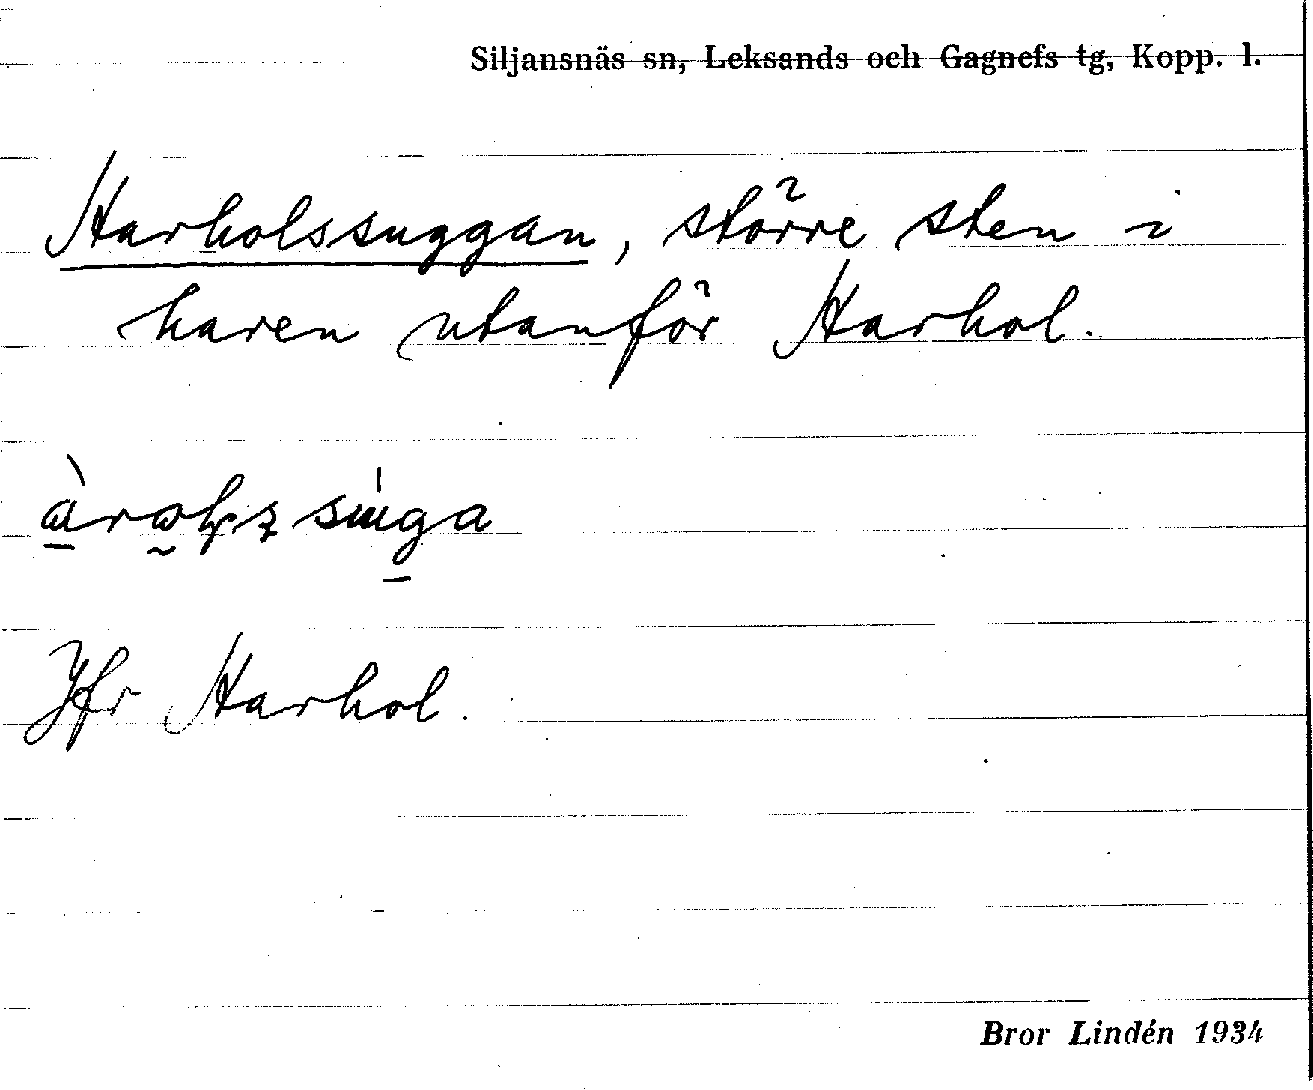 Siljansnäs sn, Leksands och Gagnefs tg, Kopp. l.
Harholssuggan, större sten i
haren utanför Harhol.
Jfr Harhol.
Bror Lindén 1934